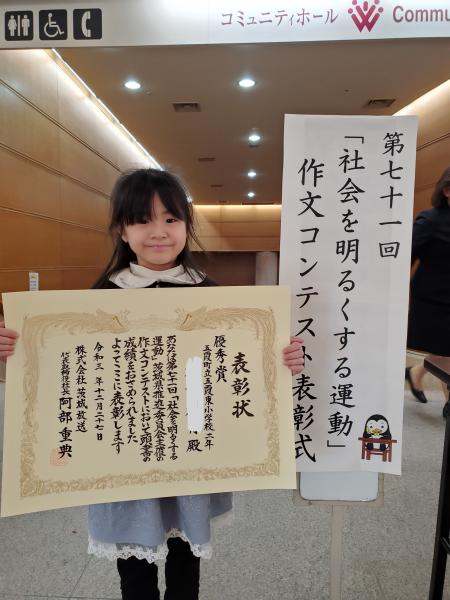 コミュニティホール
Commu
第七十一回
「社会を明るくする運動」
作文コンテスト表彰式
表彰状
優秀賞
五霞町立五霞東小学校二年
殿
あなたは第七十一回「社会を明るくする
運動」茨城県推進委員会主催の
作文コンテストにおいて頭書の
成績をおさめられました
よってここに表彰します
令和三年十二月二十七日
株式会社茨城放送
代表取締役社長 阿部重典